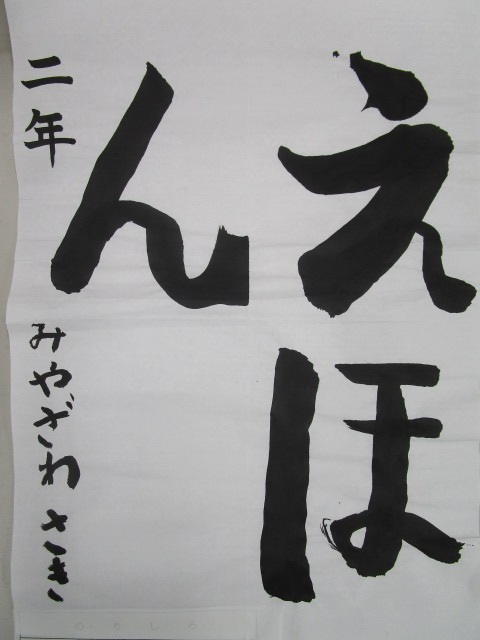 えほ
ん
二年 みやざわ さき